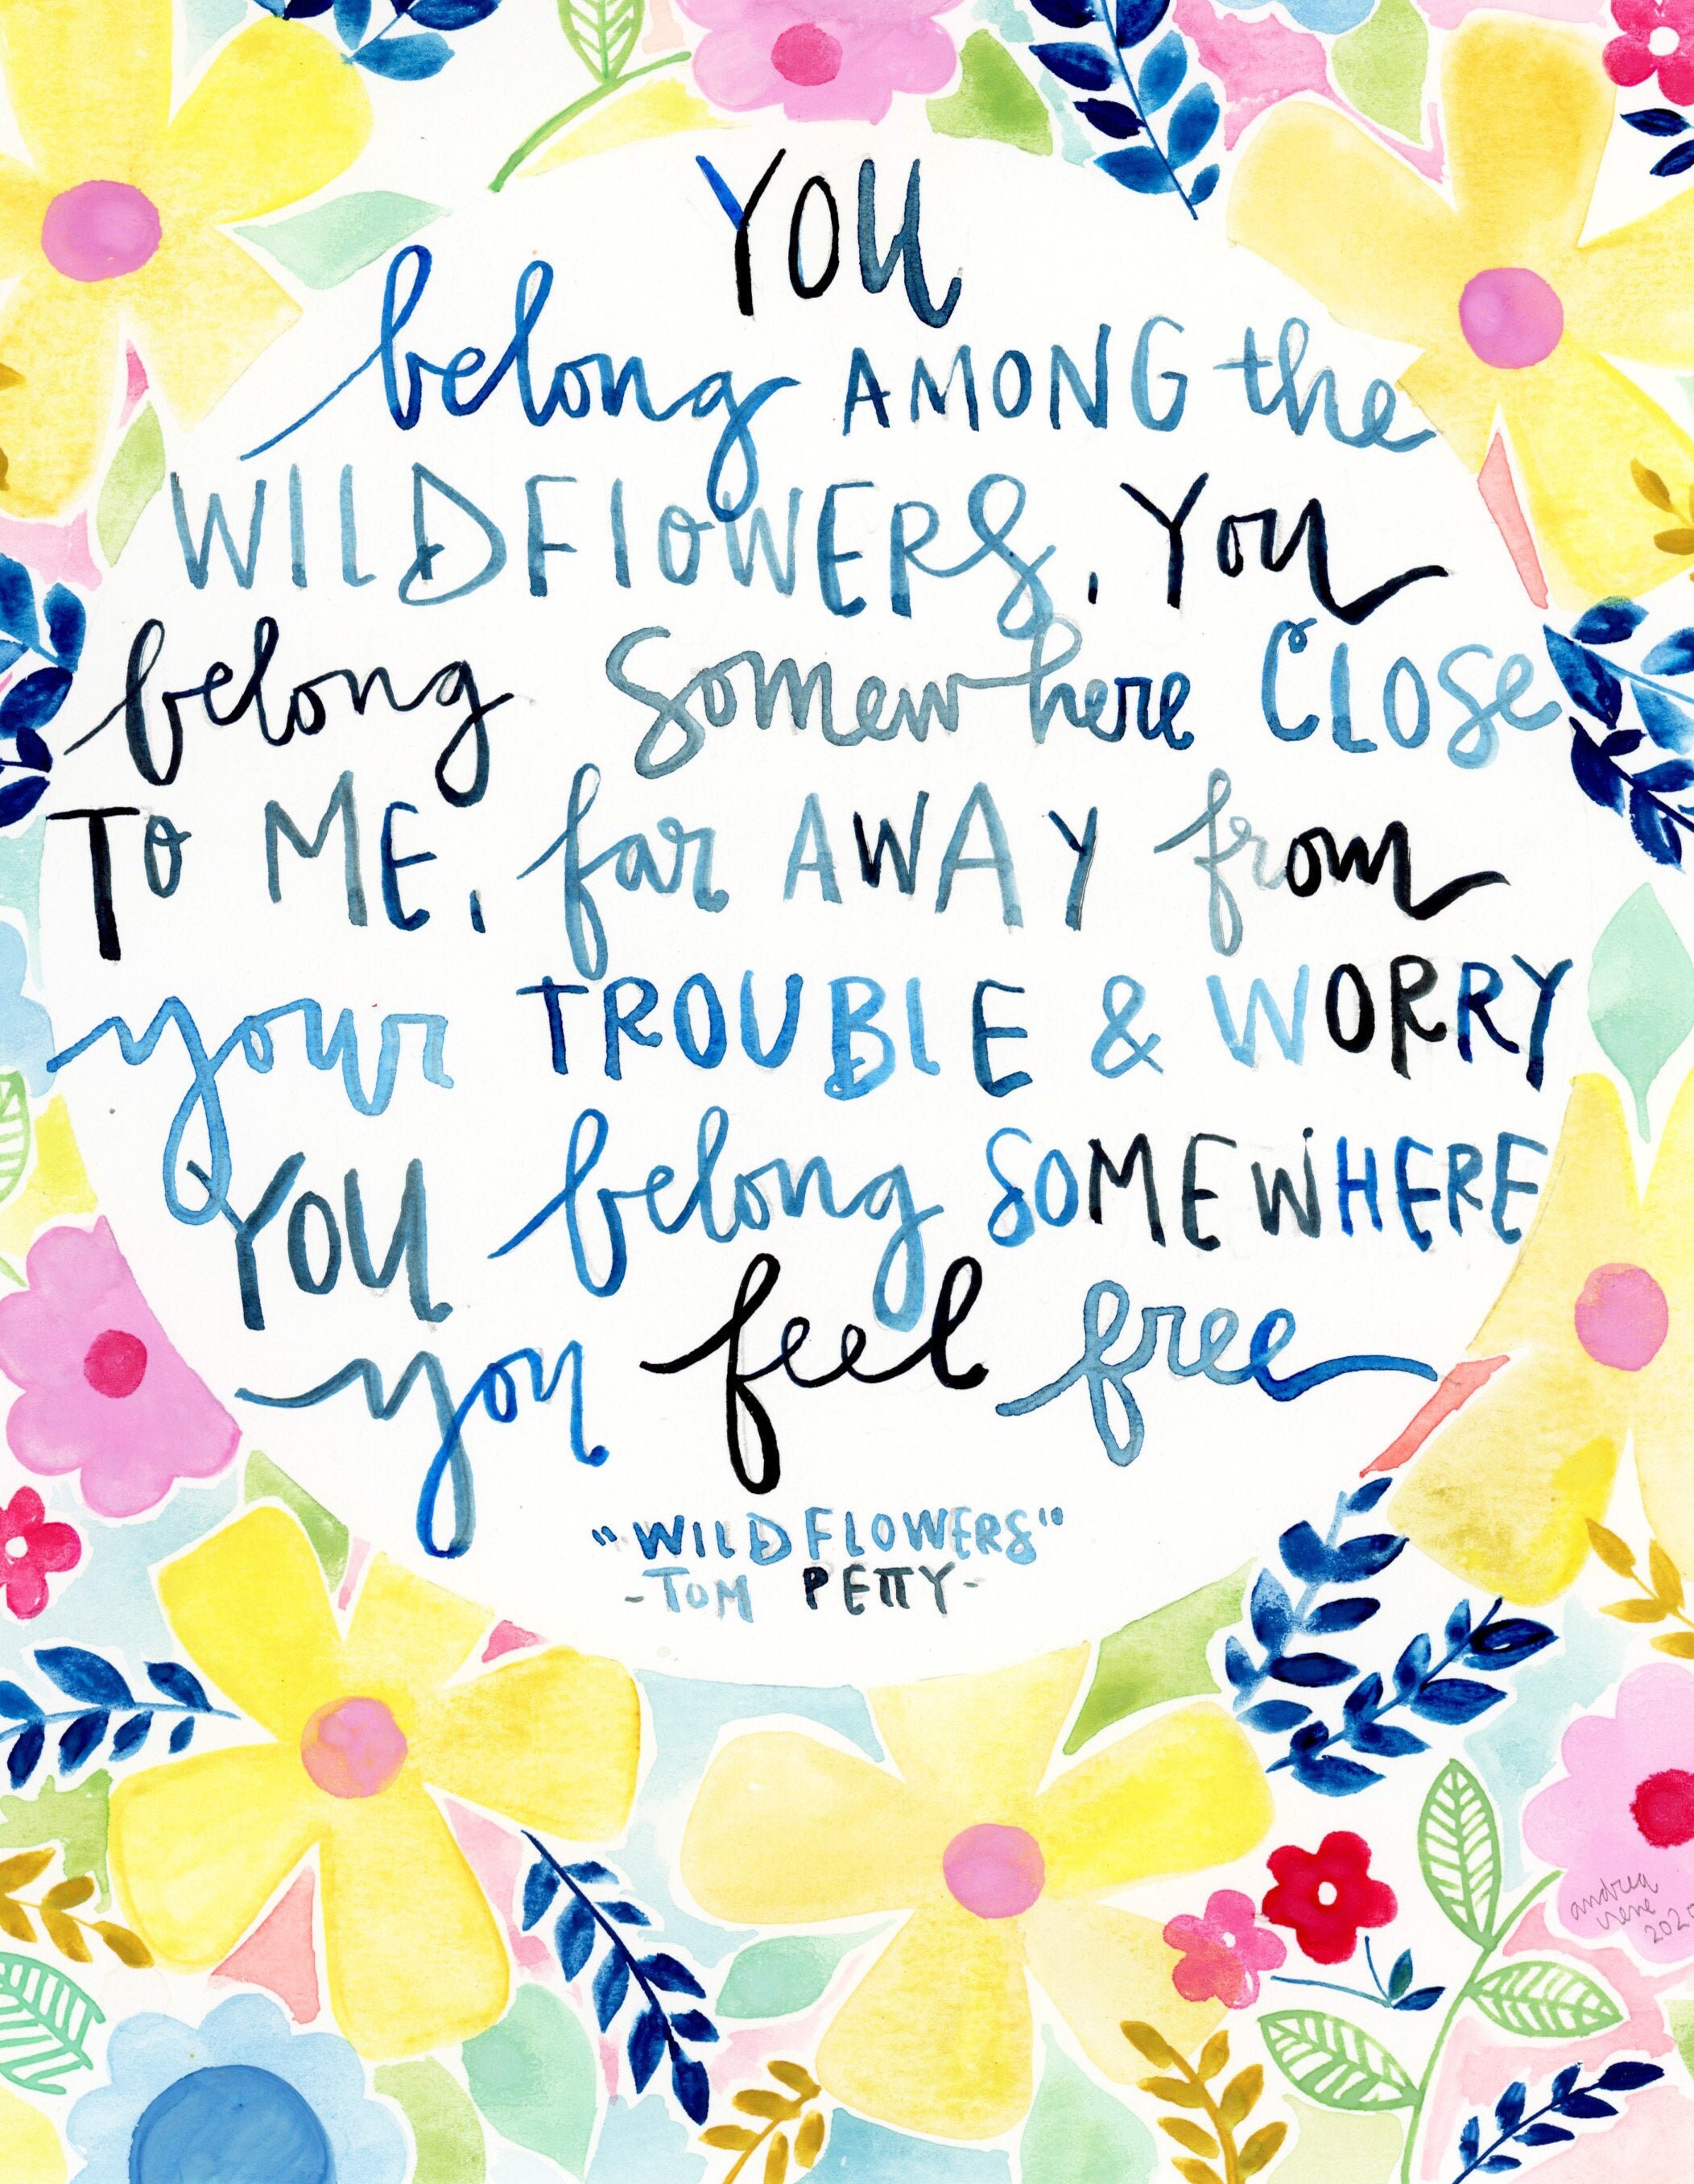 You
belong AMONG the
WILDFlOWERS. You
belong somewhere CLOSe
To ME, far AWAY from
your TROUBLE & WORRY
YOU belong SOMEWHERE
you feel free
"WILDFLOWERS"
-ToM PETTY-
andrea
irene
2020